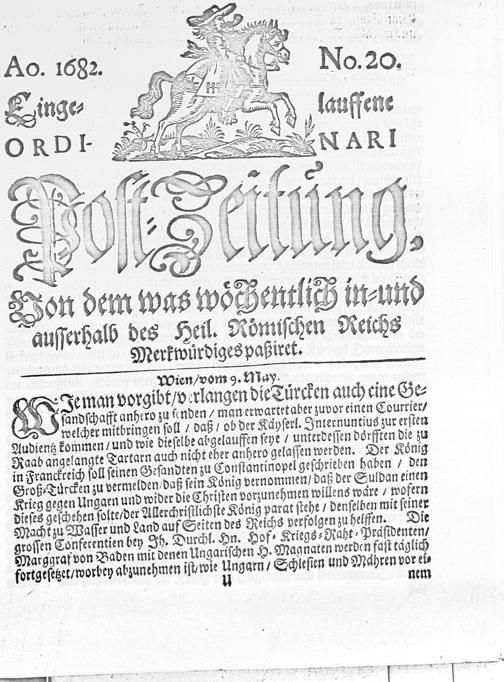 Ao. 1682.
No. 20.
Einge-
lauffene
ORDI-
NARI
Post-Zeitung,
Von dem was wöchentlich in-und
ausserhalb des Heil. Römischen Reichs
Merkwürdiges paßiret.
Wien/vom 9. May.
WIe man vorgibt/verlangen die Türcken auch eine Ge-
sandschafft anhero zu senden / man erwartet aber zuvor einen Courrier/
welcher mitbringen soll / daß / ob der Käyserl. Internuntius zur ersten
Audientz kommen / und wie dieselbe abgelauffen seye / unterdessen dörfften die zu
Raab angelangte Tartarn auch nicht eher anhero gelassen werden. Der König
in Franckreich soll seinen Gesandten zu Constantinopel geschrieben haben / den
Groß-Türcken zu vermelden/daß sein König vernommen/daß der Sultan einen
Krieg gegen Ungarn und wider die Christen vorzunehmen willens wäre / wofern
dieses geschehen solte/der Allerchristlichste König parat stehe / denselben mit seiner
Macht zu Wasser und Land auf Seiten des Reichs verfolgen zu helffen. Die
grossen Conferentien bey Ih. Durchl. Hn. Hof-Kriegs-Raht-Präsidenten/
Marggraf von Baden mit denen Ungarischen H. Magnaten werden fast täglich
fortgesetzet/worbey abzunehmen ist/wie Ungarn / Schlesien und Mähren vor ei-
U
nem